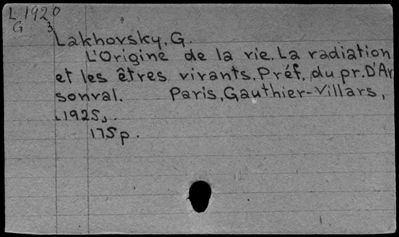 L 1920
G 3
Lakhovsky, G.
L'Origine de la vie. La radiation
et les êtres vivants. Préf. du pr. D'Ar
sonval. Paris, Gauthier-Villars,
[1925].
175p.